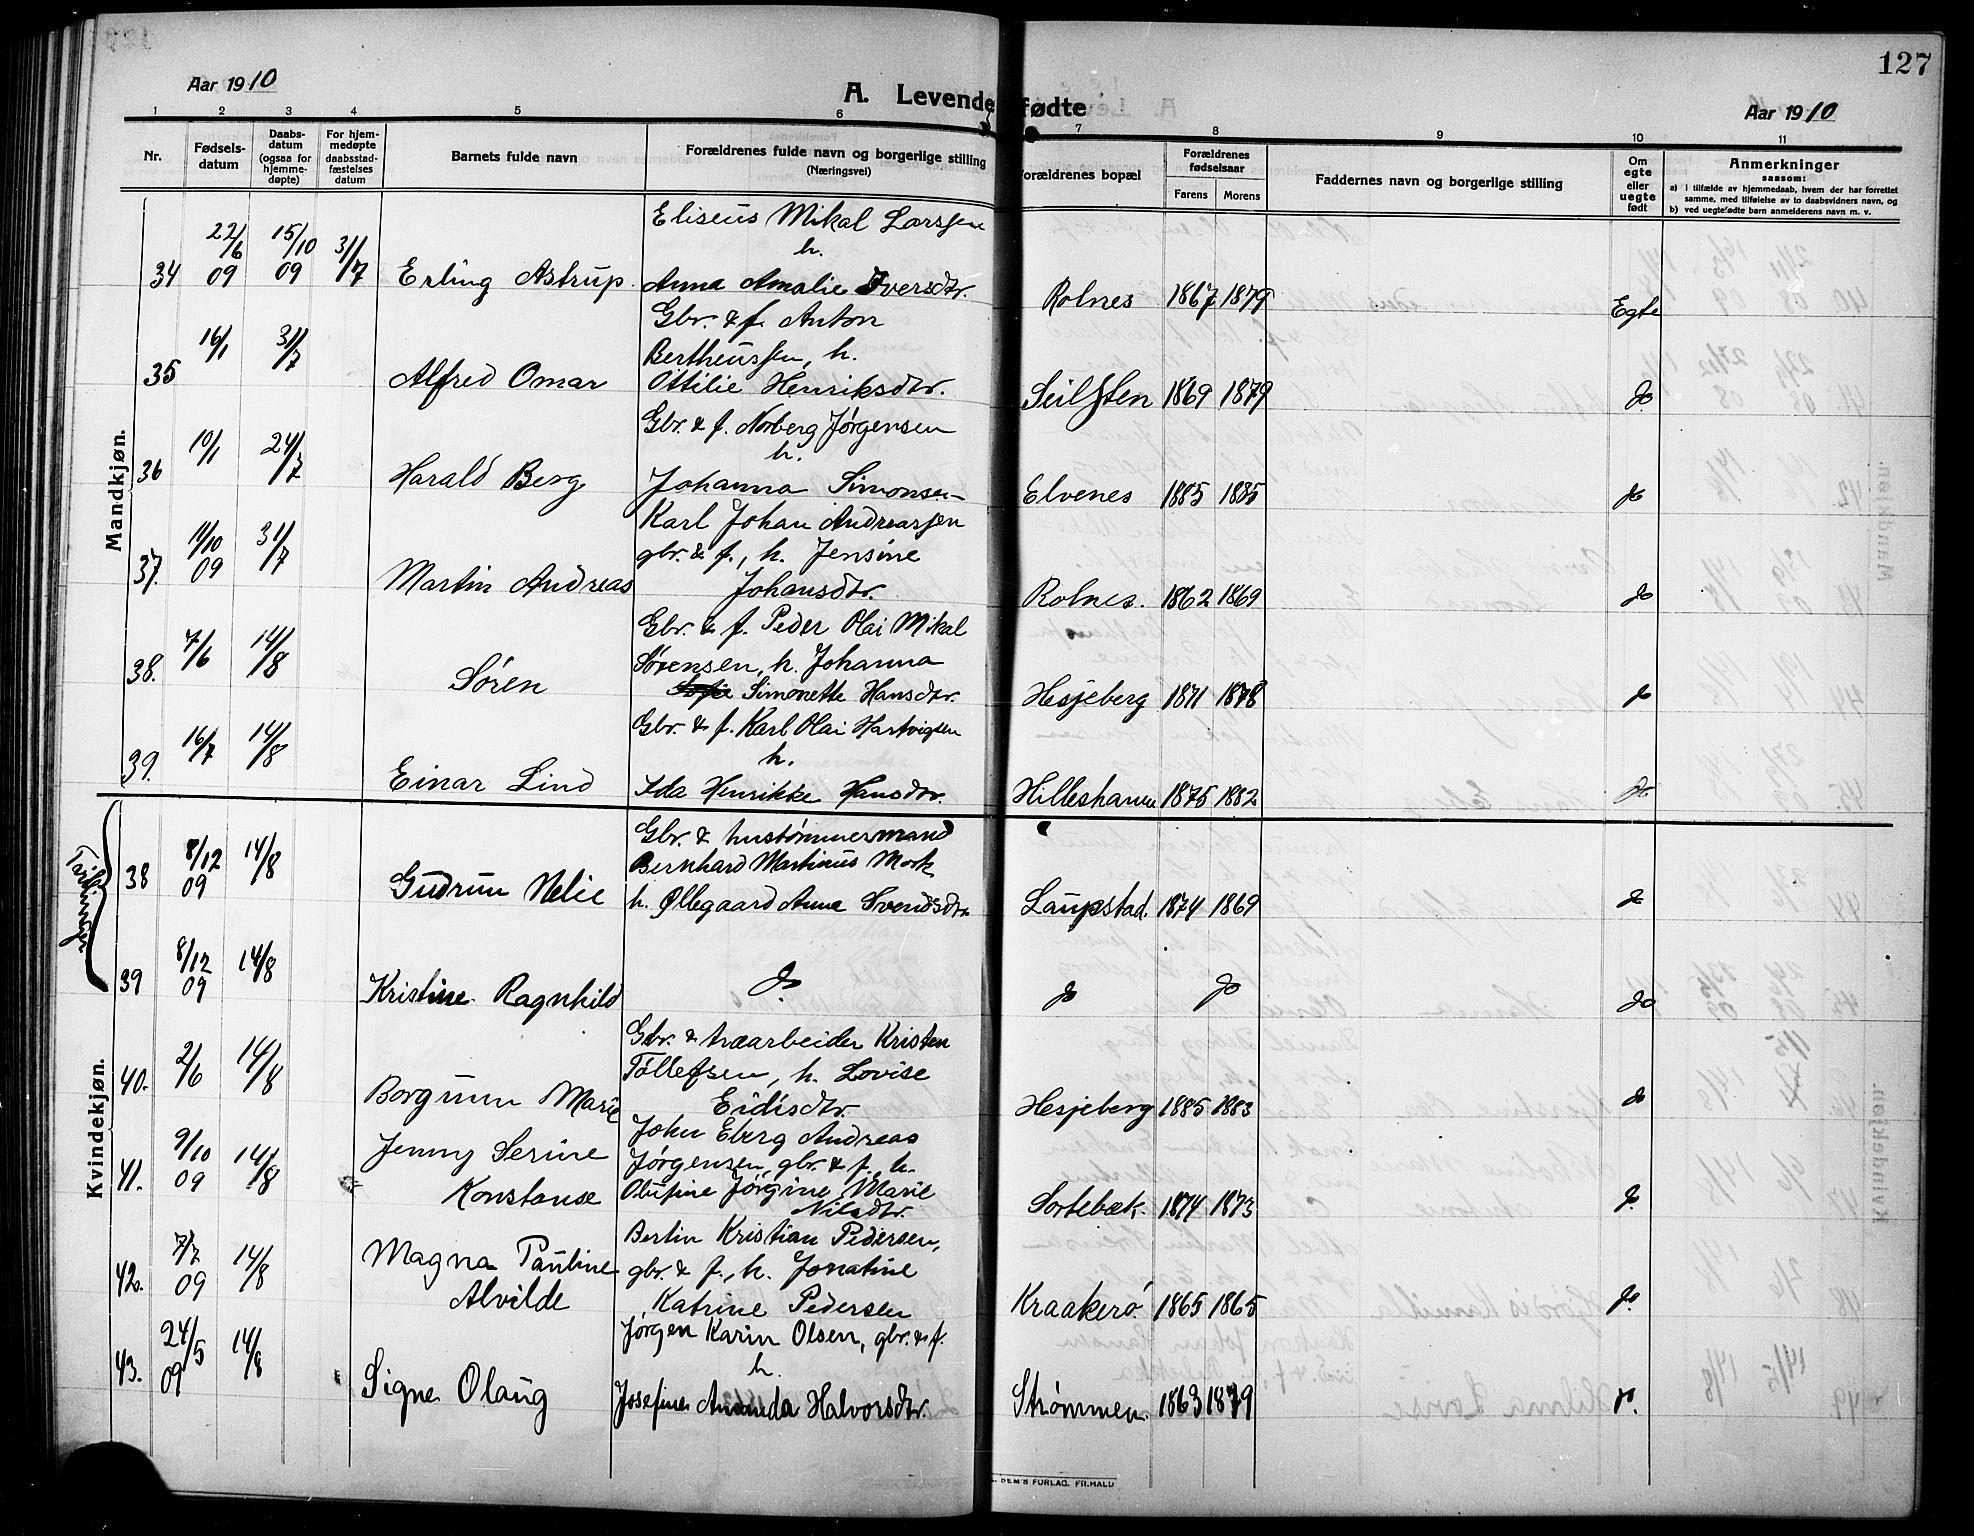 127
Aar 1910
A. Levende fødte
Aar 1910
1 2 3 4 5 6 7 8 9 10 11
Nr.
Fødsels-
datum
Daabs-
datum
(ogsaa for
hjemme-
døpte)
For hjem-
medøpte
daabsstad-
fæstelses
datum
Barnets fulde navn
Forældrenes fulde navn og borgerlige stilling
(Næringsvei)
Forældrenes bopæl
Forældrenes
fødselsaar
Farens Morens
Faddernes navn og borgerlige stilling
Om
egte
eller
uegte
født
Anmerkninger
saasom:
a) i tilfælde av hjemmedaab, hvem der har forrettet
samme, med tilføielse av to daabsvidners navn, og
b) ved uegtefødte barn anmelderens navn m. v.
Mandkjøn.
Eliseus Mikal Larssen
22/6 15/10 31/7 h.
34 09 09 Erling Astrup. Anna Amalie Iversdtr. Rolnes 1867 1879 Egte
Gbr. & f. Anton
16/1 31/7 Bertheussen, h.
35 Alfred Omar Ottilie Henriksdtr. Seilsten 1869 1879 do
Gbr. & f. Norberg Jørgensen
10/1 24/7 h.
36 Harald Berg Johanna Simonsen Elvenes 1885 1885 do
Karl Johan Andreassen
11/10 31/7 gbr. & f., h. Jensine
37. 09 Martin Andreas Johansdtr. Rolnes. 1862 1869 do
Gbr. & f. Peder Olai Mikal
7/6 14/8 Sørensen, h. Johanna
38. Søren Sofie Simonette Hansdtr. Hesjeberg 1871 1878 do
Gbr. & f. Karl Olai Hartvigsen
16/7 14/8 h.
39. Einar Lind Ida Henrikke Hansdtr. Hilleshamn 1875 1882 do
Kvindekjøn.
Tvillinger
Gbr. & hustømmermand
8/12 14/8 Bernhard Martinus Mork
38 09 Gudrun Nelie h. Øllegaard Anna Svendsdtr. Laupstad. 1874 1869 do
8/12 14/8
39 09 Kristine Ragnhild do. do do do
Gbr. & træarbeider Kristen
2/6 14/8 Tollefsen, h. Lovise
40. Borgunn Marie Eidisdtr. Hesjeberg 1885 1883 do
John Eberg Andreas
9/10 14/8 Jenny Serine Jørgensen, gbr. & f. h.
41. 09 Konstanse Olufine Jørgine Marie
Nilsdtr. Sortebæk. 1874 1873 do.
Bertin Kristian Pedersen,
7/7 14/8 Magna Pauline gbr. & f., h. Jonatine
42. 09 Alvilde Katrine Pedersen Kraakerø. 1865 1865 do.
Jørgen Karin Olsen, gbr. & f.
24/5 14/8 h.
43. 09 Signe Olaug Josefine Amanda Halvorsdtr. Strømmen. 1863 1879 do.
SEM'S FORLAG. FR.HALD